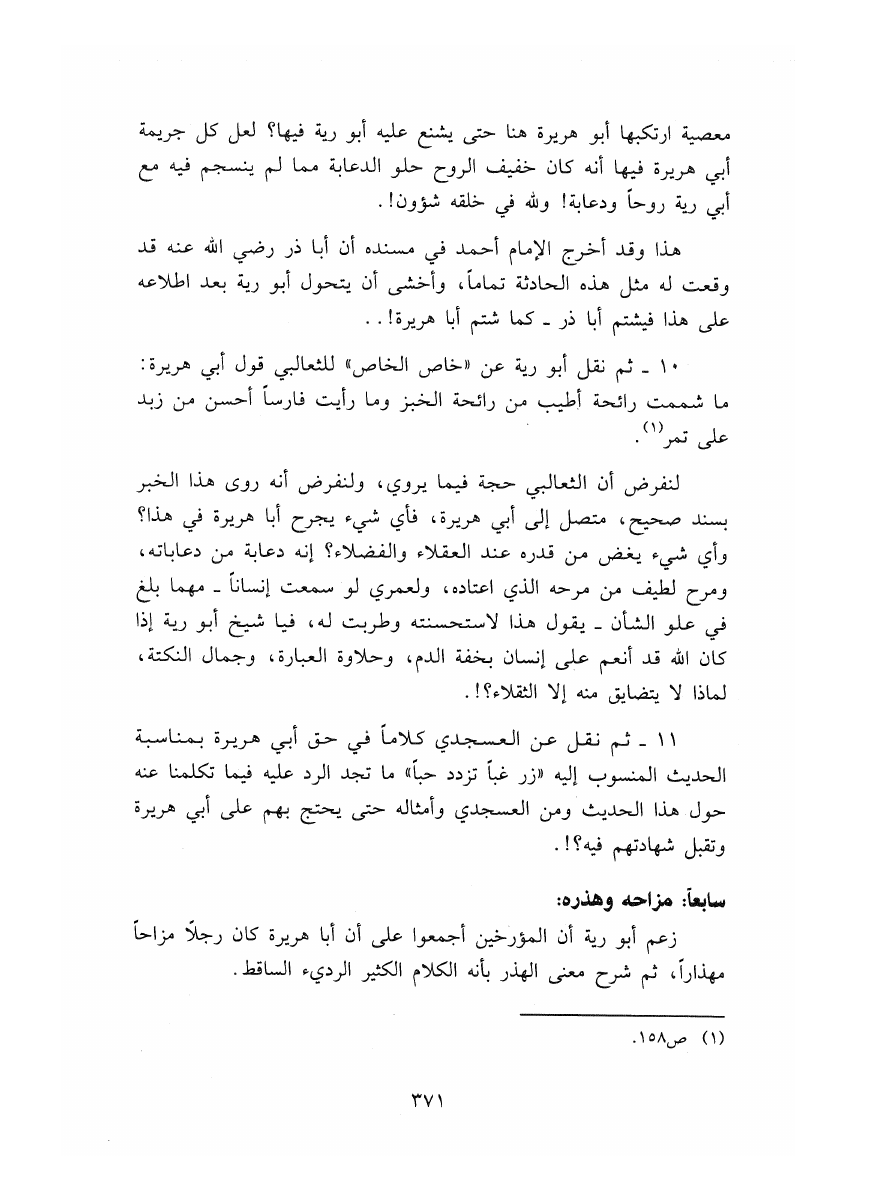 معصية ارتكبها أبو هريرة هنا حتى يشنع عليه أبو رية فيها؟ لعل كل جريمة
أبي هريرة فيها أنه كان خفيف الروح حلو الدعابة مما لم ينسجم فيه مع
أبي رية روحاً ودعابة! ولله في خلقه شؤون!.
هذا وقد أخرج الإمام أحمد في مسنده أن أبا ذر رضي الله عنه قد
وقعت له مثل هذه الحادثة تماماً، وأخشى أن يتحول أبو رية بعد اطلاعه
على هذا فيشتم أبا ذر ـ كما شتم أبا هريرة!..
١٠ ـ ثم نقل أبو رية عن «خاص الخاص» للثعالبي قول أبي هريرة:
ما شممت رائحة أطيب من رائحة الخبز وما رأيت فارساً أحسن من زبد
على تمر(١).
لنفرض أن الثعالبي حجة فيما يروي، ولنفرض أنه روى هذا الخبر
بسند صحيح، متصل إلى أبي هريرة، فأي شيء يجرح أبا هريرة في هذا؟
وأي شيء يغض من قدره عند العقلاء والفضلاء؟ إنه دعابة من دعاباته،
ومرح لطيف من مرحه الذي اعتاده، ولعمري لو سمعت إنساناً ـ مهما بلغ
في علو الشأن ـ يقول هذا لاستحسنته وطربت له، فيا شيخ أبو رية إذا
كان الله قد أنعم على إنسان بخفة الدم، وحلاوة العبارة، وجمال النكتة،
لماذا لا يتضايق منه إلا الثقلاء؟!.
١١ ـ ثم نقل عن العسجدي كلاماً في حق أبي هريرة بمناسبة
الحديث المنسوب إليه «زر غباً تزدد حباً» ما تجد الرد عليه فيما تكلمنا عنه
حول هذا الحديث ومن العسجدي وأمثاله حتى يحتج بهم على أبي هريرة
وتقبل شهادتهم فيه؟!.
سابعاً: مزاحه وهذره:
زعم أبو رية أن المؤرخين أجمعوا على أن أبا هريرة كان رجلاً مزاحاً
مهذاراً، ثم شرح معنى الهذر بأنه الكلام الكثير الرديء الساقط.
(١) ص١٥٨.
٣٧١